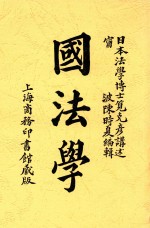 日本法學博士筧克彥講述
甯波陳時夏編輯
國法學
上海商務印書館藏版